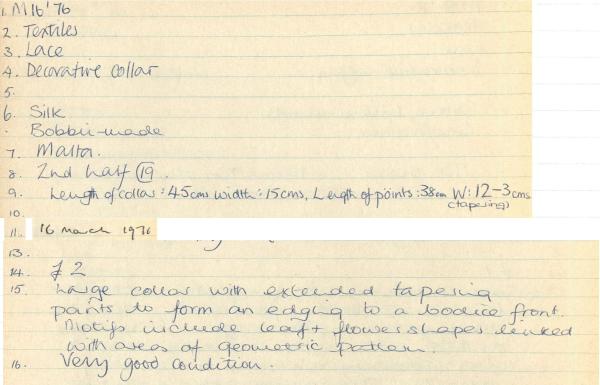 1. M16'76
2. Textiles
3. Lace
4. Decorative collar
5.
6. Silk
. Bobbin-made
7. Malta.
8. 2nd half 19.
9. Length of collar: 45cms width: 15cms, Length of points: 38cm W: 12-3cms
(tapering)
10.
11. 16 March 1976
13.
14. £2
15. Large collar with extended tapering
points to form an edging to a bodice front.
Motifs include leaf + flower shapes linked
with areas of geometric pattern.
16. Very good condition.